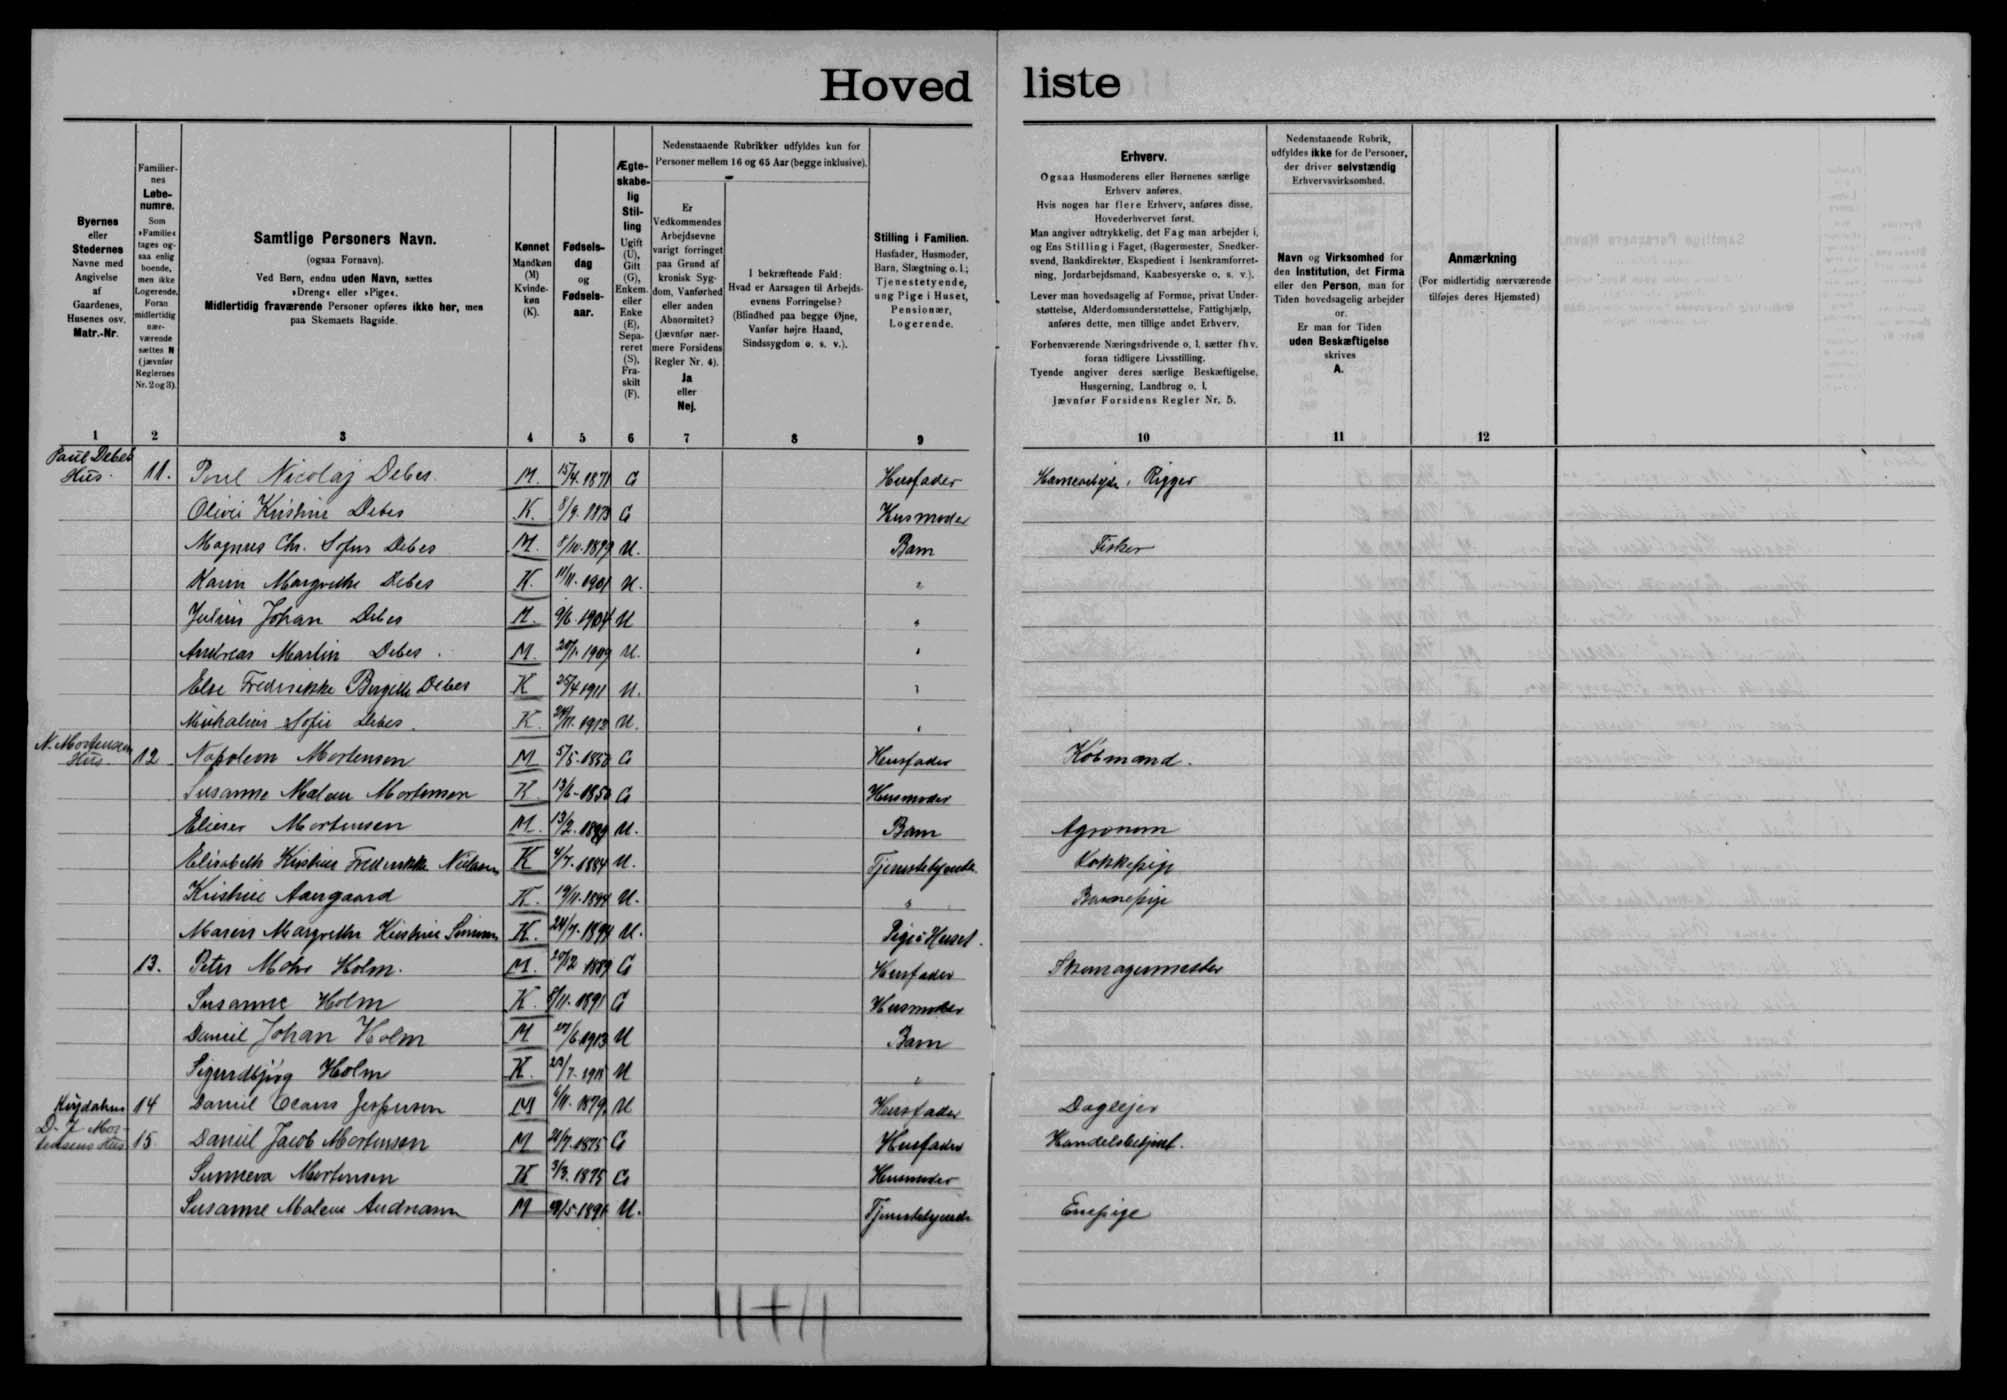 Hovedliste
Byernes
eller
Stedernes
Navne med
Angivelse
af
Gaardenes,
Husenes osv.
Matr.-Nr.
Familier-
nes
Løbe-
numre.
Som
»Familie«
tages og-
saa enlig
boende,
men ikke
Logerende.
Foran
midlertidig
nær-
værende
sættes N
(jævnfør
Reglernes
Nr. 2 og 3).
Samtlige Personers Navn.
(ogsaa Fornavn).
Ved Børn, endnu uden Navn, sættes
»Dreng« eller »Pige«.
Midlertidig fraværende Personer opføres ikke her, men
paa Skemaets Bagside.
Kønnet
Mandkøn
(M)
Kvinde-
køn
(K).
Fødsels-
dag
og
Fødsels-
aar.
Ægte-
skabe-
lig
Stil-
ling
Ugift
(U),
Gift
(G),
Enkem.
eller
Enke
(E),
Sepa-
reret
(S),
Fra-
skilt
(F).
Nedenstaaende Rubrikker udfyldes kun for
Personer mellem 16 og 65 Aar (begge inklusive).
Er
Vedkommendes
Arbejdsevne
varigt forringet
paa Grund af
kronisk Syg-
dom, Vanførhed
eller anden
Abnormitet?
(Jævnfør nær-
mere Forsidens
Regler Nr. 4).
Ja
eller
Nej.
I bekræftende Fald:
Hvad er Aarsagen til Arbejds-
evnens Forringelse?
(Blindhed paa begge Øjne,
Vanfør højre Haand,
Sindssygdom o. s. v.).
Stilling i Familien.
Husfader, Husmoder,
Barn, Slægtning o. l.;
Tjenestetyende,
ung Pige i Huset,
Pensionær,
Logerende.
Erhverv.
Ogsaa Husmoderens eller Børnenes særlige
Erhverv anføres.
Hvis nogen har flere Erhverv, anføres disse,
Hovederhvervet først.
Man angiver udtrykkelig, det Fag man arbejder i,
og Ens Stilling i Faget, (Bagermester, Snedker-
svend, Bankdirektør, Ekspedient i Isenkramforret-
ning, Jordarbejdsmand, Kaabesyerske o. s. v.).
Lever man hovedsagelig af Formue, privat Under-
støttelse, Alderdomsunderstøttelse, Fattighjælp,
anføres dette, men tillige andet Erhverv.
Forhenværende Næringsdrivende o. l. sætter fhv.
foran tidligere Livsstilling.
Tyende angiver deres særlige Beskæftigelse,
Husgerning, Landbrug o. l.
Jævnfør Forsidens Regler Nr. 5.
Nedenstaaende Rubrik,
udfyldes ikke for de Personer,
der driver selvstændig
Erhvervsvirksomhed.
Navn og Virksomhed for
den Institution, det Firma
eller den Person, man for
Tiden hovedsagelig arbejder
or.
Er man for Tiden
uden Beskæftigelse
skrives
A.
Anmærkning
(For midlertidig nærværende
tilføjes deres Hjemsted)
1 2 3 4 5 6 7 8 9 10 11 12
Paul Debes
Hus. 11. Poul Nicolaj Debes. M. 15/4. 1871 G Husfader Rigger
Kristine Debes K. G Husmoder
Magnus Chr. Sofus Debes M. U. Barn Fisker
Karin Margrethe Debes K. 11/11. 1901 U. "
Julius Johan Debes M. 9/6. 1904 U "
Andreas Martin Debes. M. U. "
Else Fredrikke Debes K 25/4 1911 U. "
Sofie Debes. K U. "
N. Mortensen
Hus. 12 Napoleon Mortensen M 5/5. 1850 G Husfader Købmand.
Susanne Malene Mortensen K. G Husmoder
Elieser Mortensen M. U. Barn Agronom
Elisabeth Kristine Frederikke K 4/7. 1884 U. Tjenestetyende Kokkepige
Kristine Aargaard K. U. " Barnepige
Margrethe Kristine K. U. Pige i Huset.
13. Peter Mohr Holm. M. G Husfader Skomagermester
Susanne Holm K. 8/11. 1891 G Husmoder
Daniel Johan Holm M U Barn
Holm K. U "
14 Daniel Jespersen M 6/11. 1879. U Husfader Daglejer
D. J. Mor-
tensens Hus 15. Daniel Jacob Mortensen M G Husfader Handelsbetjent.
Sunneva Mortensen K 3/3. 1875 G Husmoder
Susanne Malene M U. Tjenestetyende Enepige
11+11